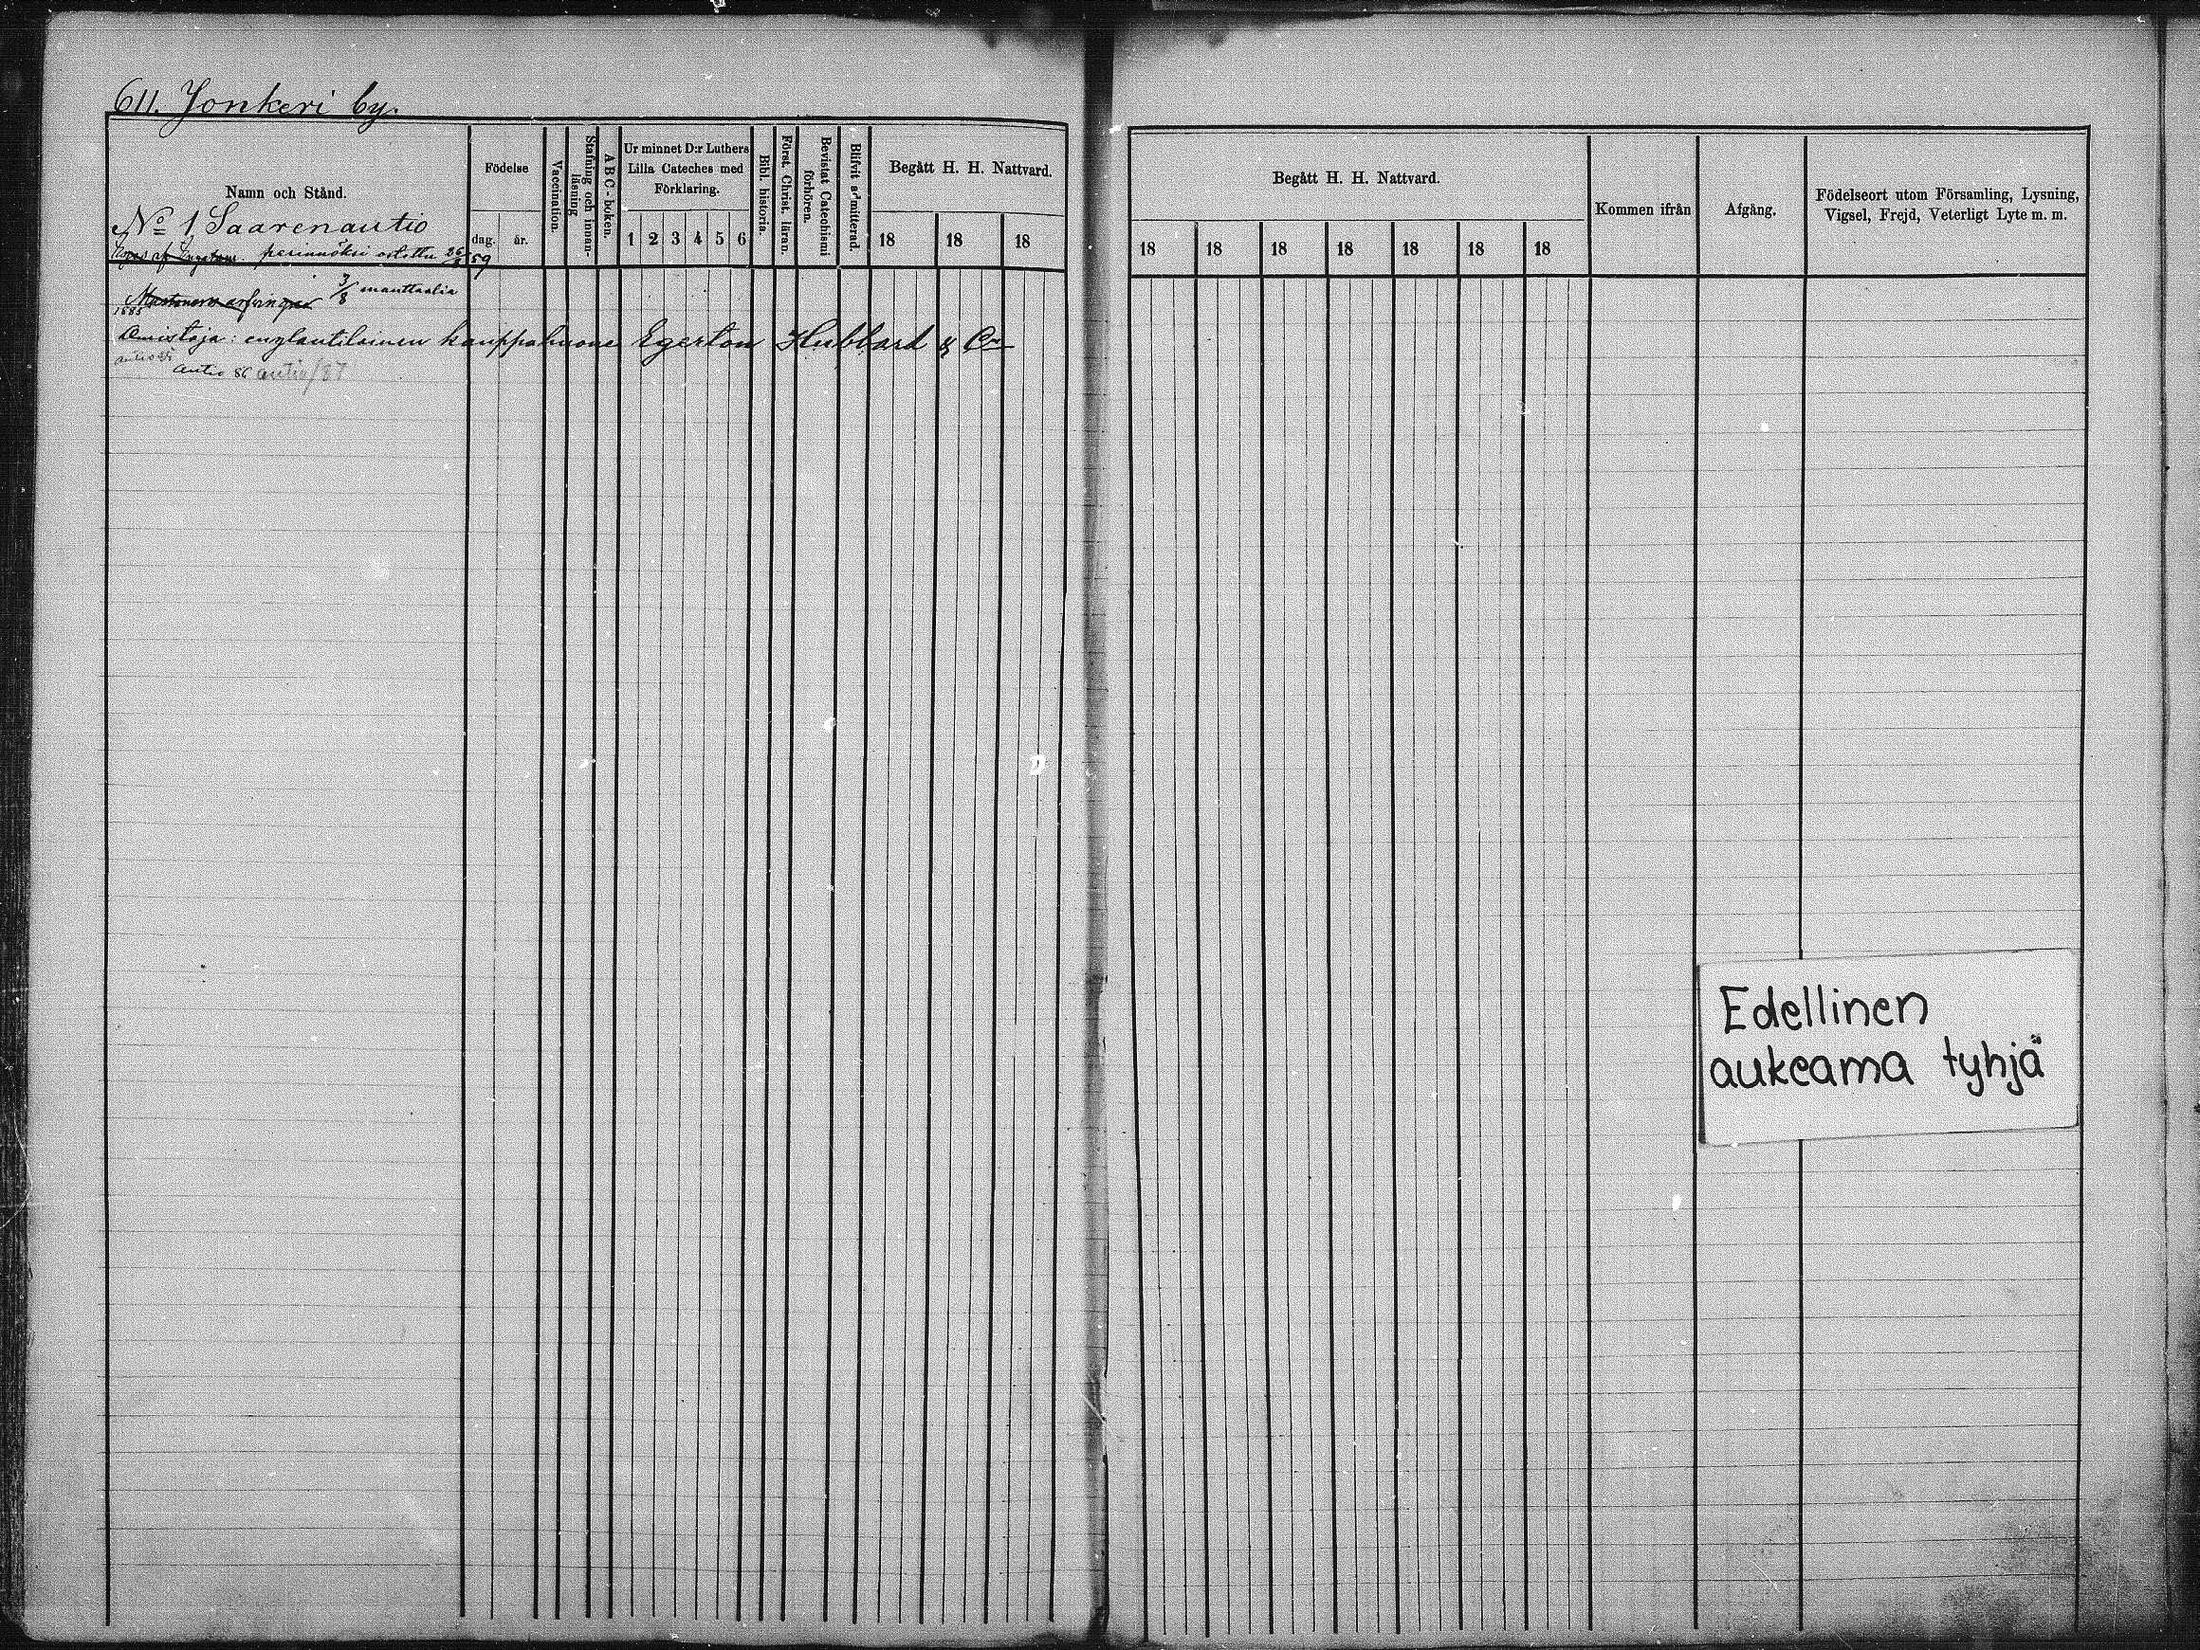 611. Jonkeri by.
Namn och Stånd.
No 1 Saarenautio
perinnöksi ostettu 26/ 59
3/8 manttaalia
1885
Omistaja: englantilainen kauppahuone Egerton Hubbard & Co
autio 86 autio/87
Födelse
dag. år.
Vaccination.
Stafning och innanläsning
ABC-boken.
Ur minnet D:r Luthers
Lilla Cateches med
Förklaring.
1 2 3 4 5 6
Bibl. historia.
Först. Christ. läran.
Bevistat Catechismi
förhören.
Blifvit admitterad.
Begått H. H. Nattvard.
18 18 18
Begått H. H. Nattvard.
18 18 18 18 18 18 18
Kommen ifrån
Afgång.
Födelseort utom Församling, Lysning,
Vigsel, Frejd, Veterligt Lyte m. m.
Edellinen
aukeama tyhjä